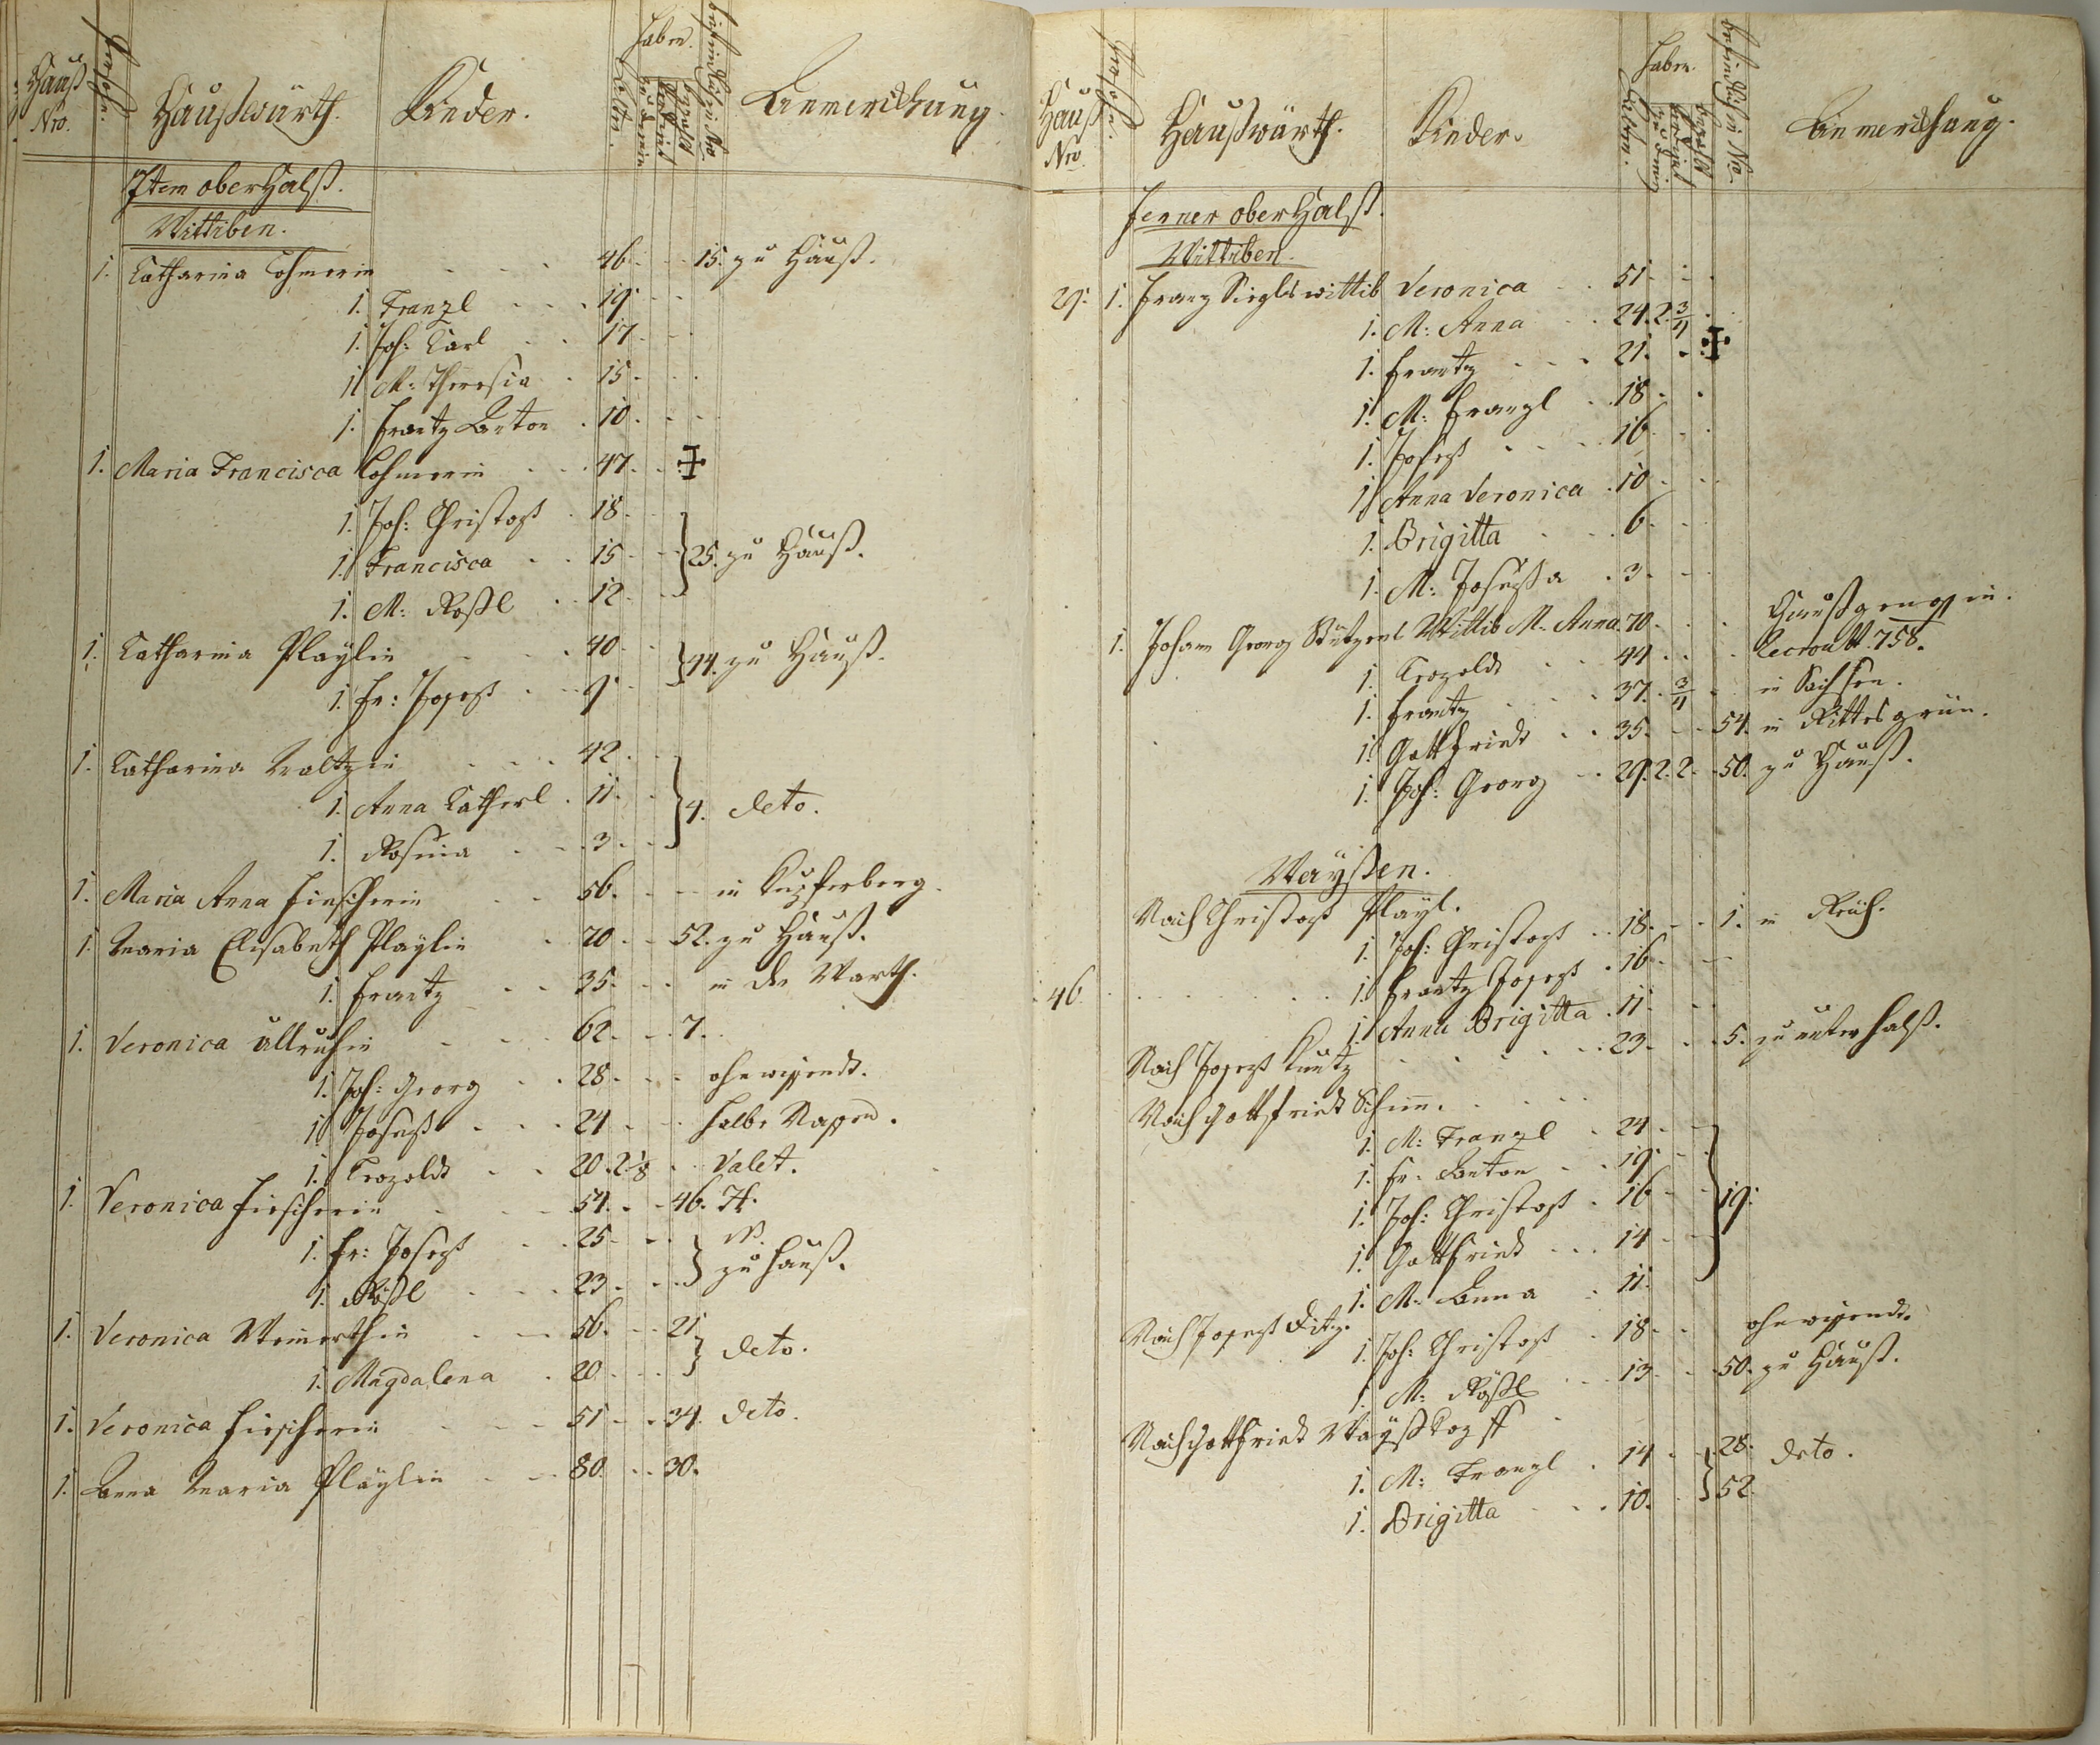 Hauß Nro.
Persohn.
Haußwürth.
Kinder.
Alter.
Haben.
befindet sich in No
Anmerckhung.
Item oberHalß.
Wittiben.
1. Catharina Lohmerin 46. 15. zu Hauß.
1. Franzl 19.
1. Joh: Carl 17.
1. M: Theresia 15.
1. Frantz Anton 10.
1. Maria Francisca Lohmerin 47.
1. Joh: Christoph 18.
1. Francisca 15 25. zu Hauß.
1. M: Roßl 12
1. Catharina Playlin 40. 44. zu Hauß.
1. Fr: Joseph 9
1. Catharina 42
1. Anna Catherl 11. 4. deto.
1. Rosina 3
1. Maria Anna Fischerin 56. in Kupferberg.
1. Maria Elisabeth Playlin 70 52. zu Hauß.
1. Frantz 35. in der Warth.
1. Veronica 62 7.
1. Joh: Georg 28 ohnwissendt.
1. Joseph 24
1. Leopoldt 20. 2. 1/8 Valet.
1. Veronica Fischerin 54. 46. H.
1. Fr: Joseph 25
1. Roßl 23 zu Hauß.
1. Veronica Weinerthin 56. 21
1. Magdalena 20 deto.
1. Veronica Fischerin 51 34. deto.
1. Anna Maria Playlin 80 30.
Hauß Nro
Persohn.
Haußwürth.
Kinder.
Alter.
Haben.
befindet sich in No.
Anmerckhung.
Ferner oberHalß.
Wittiben.
29. 1. Frantz Siegls wittib Veronica 51
1. M: Anna 24. 2. 3/4
1. Frantz 21.
1. M: Franzl 18
1. Joseph 16
1. Anna Veronica 10
1. Brigitta 6
1. M: Josepha 3
1. Johann Georg Wittib M. Anna 70. Haußgenossin.
1. Leopoldt 44 Recroutt. 758.
1. Frantz 37. 3/4 in Sachsen.
1. Gottfriedt 35 54. in Rittersgrün.
1. Joh: Georg 29. 2. 2. 50. zu Hauß.
Wayßen.
Nach Christoph Playl.
1. Joh: Christoph 18. 1. in Reich.
46. 1. Frantz Joseph 16
1. Anna Brigitta 11.
Nach Joseph Kuntz 23 5. zu unterhalß.
Nach Gottfriedt
1. M: Franzl 24
1. Fr. Anton 19.
1. Joh: Christoph 16 19.
1. Gottfriedt 14
1. M. Anna 11
Nach Joseph Ditz.
1. Joh: Christoph 18 ohnwissendt.
1. M: Roßl 13 50. zu Hauß.
Nach Gottfriedt Wayßkopff
1. M: Franzl 14 28. deto.
1. Brigitta 10. 52